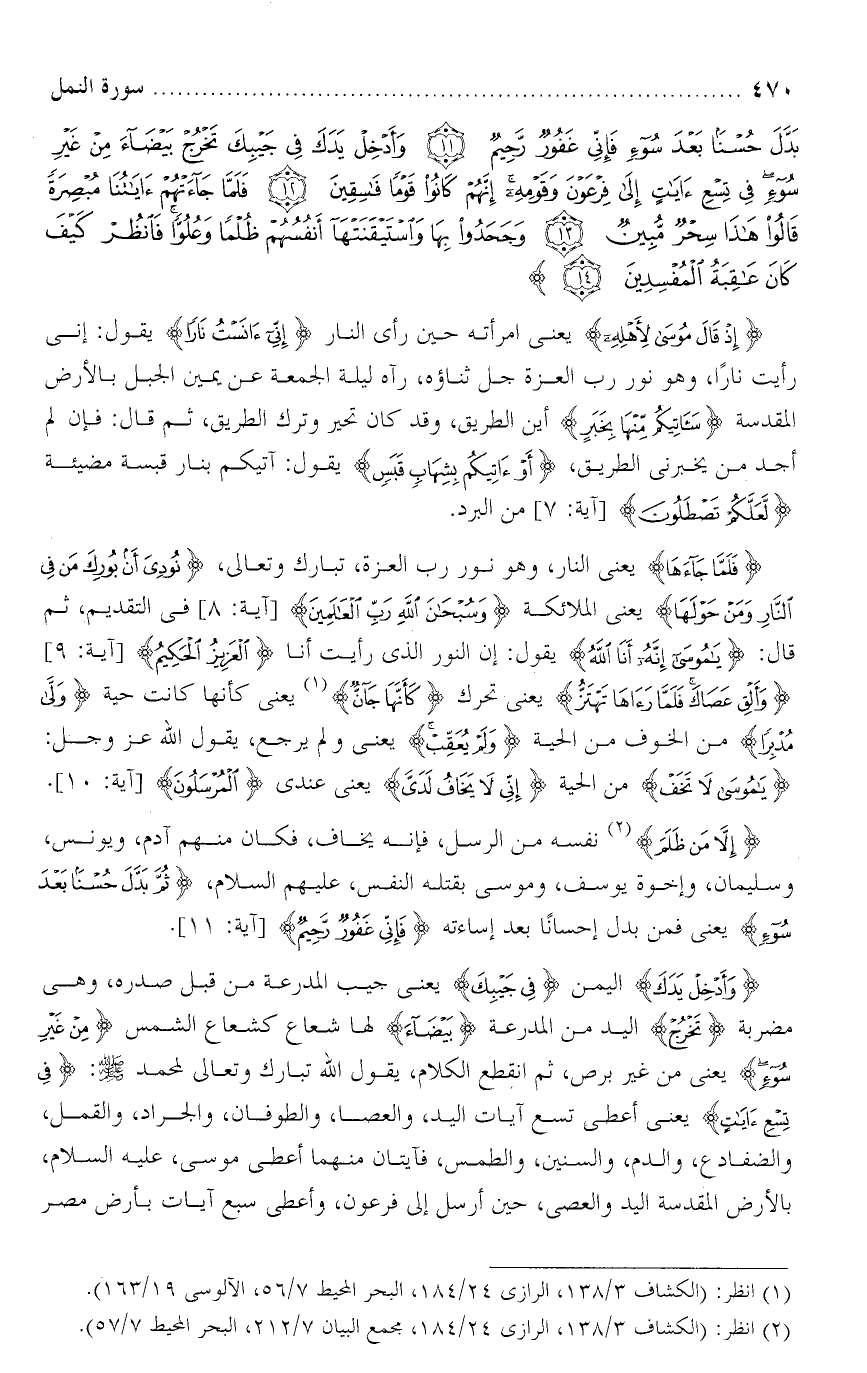 ٤٧٠ ........................................................................ سورة النمل
بَدَّلَ حُسْنًا بَعْدَ سُوٓءٍ فَإِنِّى غَفُورٌ رَّحِيمٌ ۝١١ وَأَدْخِلْ يَدَكَ فِى جَيْبِكَ تَخْرُجْ بَيْضَآءَ مِنْ غَيْرِ
سُوٓءٍ ۖ فِى تِسْعِ ءَايَٰتٍ إِلَىٰ فِرْعَوْنَ وَقَوْمِهِۦٓ ۚ إِنَّهُمْ كَانُوا۟ قَوْمًا فَٰسِقِينَ ۝١٢ فَلَمَّا جَآءَتْهُمْ ءَايَٰتُنَا مُبْصِرَةً
قَالُوا۟ هَٰذَا سِحْرٌ مُّبِينٌ ۝١٣ وَجَحَدُوا۟ بِهَا وَٱسْتَيْقَنَتْهَآ أَنفُسُهُمْ ظُلْمًا وَعُلُوًّا ۚ فَٱنظُرْ كَيْفَ
كَانَ عَٰقِبَةُ ٱلْمُفْسِدِينَ ۝١٤ ﴾
﴿إِذْ قَالَ مُوسَىٰ لِأَهْلِهِۦٓ﴾ يعنى امرأته حين رأى النار ﴿إِنِّىٓ ءَانَسْتُ نَارًا﴾ يقول: إنى
رأيت نارًا، وهو نور رب العزة جل ثناؤه، رآه ليلة الجمعة عن يمين الجبل بالأرض
المقدسة ﴿سَـَٔاتِيكُم مِّنْهَا بِخَبَرٍ﴾ أين الطريق، وقد كان تحير وترك الطريق، ثم قال: فإن لم
أجد من يخبرنى الطريق، ﴿أَوْ ءَاتِيكُم بِشِهَابٍ قَبَسٍ﴾ يقول: آتيكم بنار قبسة مضيئة
﴿لَّعَلَّكُمْ تَصْطَلُونَ﴾ [آية: ٧] من البرد.
﴿فَلَمَّا جَآءَهَا﴾ يعنى النار، وهو نور رب العزة، تبارك وتعالى، ﴿نُودِىَ أَنۢ بُورِكَ مَن فِى
ٱلنَّارِ وَمَنْ حَوْلَهَا﴾ يعنى الملائكة ﴿وَسُبْحَٰنَ ٱللَّهِ رَبِّ ٱلْعَٰلَمِينَ﴾ [آية: ٨] فى التقديم، ثم
قال: ﴿يَٰمُوسَىٰٓ إِنَّهُۥٓ أَنَا ٱللَّهُ﴾ يقول: إن النور الذى رأيت أنا ﴿ٱلْعَزِيزُ ٱلْحَكِيمُ﴾ [آية: ٩]
﴿وَأَلْقِ عَصَاكَ ۚ فَلَمَّا رَءَاهَا تَهْتَزُّ﴾ يعنى تحرك ﴿كَأَنَّهَا جَآنٌّ﴾(١) يعنى كأنها كانت حية ﴿وَلَّىٰ
مُدْبِرًا﴾ من الخوف من الحية ﴿وَلَمْ يُعَقِّبْ ۚ﴾ يعنى ولم يرجع، يقول الله عز وجل:
﴿يَٰمُوسَىٰ لَا تَخَفْ﴾ من الحية ﴿إِنِّى لَا يَخَافُ لَدَىَّ﴾ يعنى عندى ﴿ٱلْمُرْسَلُونَ﴾ [آية: ١٠].
﴿إِلَّا مَن ظَلَمَ﴾(٢) نفسه من الرسل، فإنه يخاف، فكان منهم آدم، ويونس،
وسليمان، وإخوة يوسف، وموسى بقتله النفس، عليهم السلام، ﴿ثُمَّ بَدَّلَ حُسْنًۢا بَعْدَ
سُوٓءٍ﴾ يعنى فمن بدل إحسانًا بعد إساءته ﴿فَإِنِّى غَفُورٌ رَّحِيمٌ﴾ [آية: ١١].
﴿وَأَدْخِلْ يَدَكَ﴾ اليمن ﴿فِى جَيْبِكَ﴾ يعنى جيب المدرعة من قبل صدره، وهى
مضربة ﴿تَخْرُجْ﴾ اليد من المدرعة ﴿بَيْضَآءَ﴾ لها شعاع كشعاع الشمس ﴿مِنْ غَيْرِ
سُوٓءٍ ۖ﴾ يعنى من غير برص، ثم انقطع الكلام، يقول الله تبارك وتعالى لمحمد ﷺ: ﴿فِى
تِسْعِ ءَايَٰتٍ﴾ يعنى أعطى تسع آيات اليد، والعصا، والطوفان، والجراد، والقمل،
والضفادع، والدم، والسنين، والطمس، فآيتان منهما أعطى موسى، عليه السلام،
بالأرض المقدسة اليد والعصى، حين أرسل إلى فرعون، وأعطى سبع آيات بأرض مصر
(١) انظر: (الكشاف ١٣٨/٣، الرازى ١٨٤/٢٤، البحر المحيط ٥٦/٧، الآلوسى ١٦٣/١٩).
(٢) انظر: (الكشاف ١٣٨/٣، الرازى ١٨٤/٢٤، مجمع البيان ٢١٢/٧، البحر المحيط ٥٧/٧).